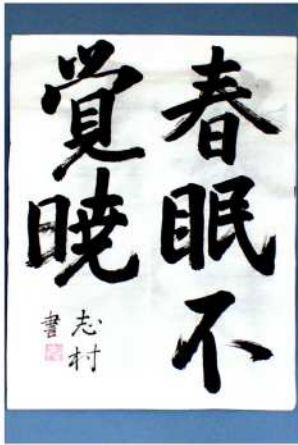 春眠不
覚暁
志村
書